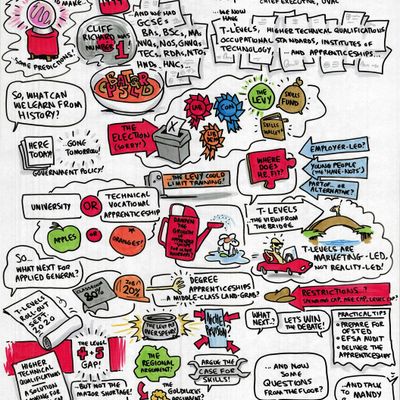 MAKE...
CHIEF EXECUTIVE, UVAC
SOME PREDICTIONS!
CLIFF
RICHARD WAS
NUMBER
1
AND WE HAD
GCSEs
BAs, BSCs, MAs
NVQs, NOS, GNVQs
RDAs, NTOs
HNDs, HNCs...
...WE NOW
HAVE
T-LEVELS, HIGHER TECHNICAL QUALIFICATIONS
OCCUPATIONAL STANDARDS, INSTITUTES OF
TECHNOLOGY... AND APPRENTICESHIPS...
SO, WHAT CAN
WE LEARN FROM
HISTORY?
HERE
TODAY!
GONE
TOMORROW!
GOVERNMENT POLICY!
THE
ELECTION
(SORRY!)
X
LAB
CON
LIB
DEM
THE
LEVY
SKILLS
FUND
SKILLS
WALLET
WHERE
DOES
HE FIT?
EMPLOYER-LED?
YOUNG PEOPLE
(THE 'HAVE-NOTS')
PART OF... OR
ALTERNATIVE?
...THE LEVY COULD
LIMIT TRAINING!
UNIVERSITY
OR
TECHNICAL
VOCATIONAL
APPRENTICESHIP
APPLES
OR
ORANGES?
DAMPEN
THE
GROWTH
T-LEVELS
THE VIEW FROM
THE BRIDGE
T-LEVELS ARE
MARKETING-LED,
NOT REALITY-LED!
SO...
WHAT NEXT FOR
APPLIED GENERAL?
CLASSROOM
80%
JOB
20%
DEGREE
APPRENTICESHIPS
A MIDDLE-CLASS LAND-GRAB?
RESTRICTIONS..?
T-LEVEL
ROLLOUT
SEPT
2020
THE LEVEL
4+5
GAP!
HIGHER
TECHNICAL
QUALIFICATIONS
A SOLUTION
...BUT NOT THE
MAJOR SHORTAGE!
THE LEVY POT
OVERSPEND
THE
REGIONAL
ARGUMENT!
THE
GOLDILOCKS
ARGUMENT
ARGUE THE
CASE FOR
SKILLS!
WHAT
NEXT..?
LET'S WIN
THE DEBATE!
PRACTICAL TIPS
PREPARE FOR
OFSTED
EFSA AUDIT
DELIVER THE
APPRENTICESHIP
...AND NOW
SOME
QUESTIONS
FROM THE FLOOR?
...AND TALK
TO MANDY